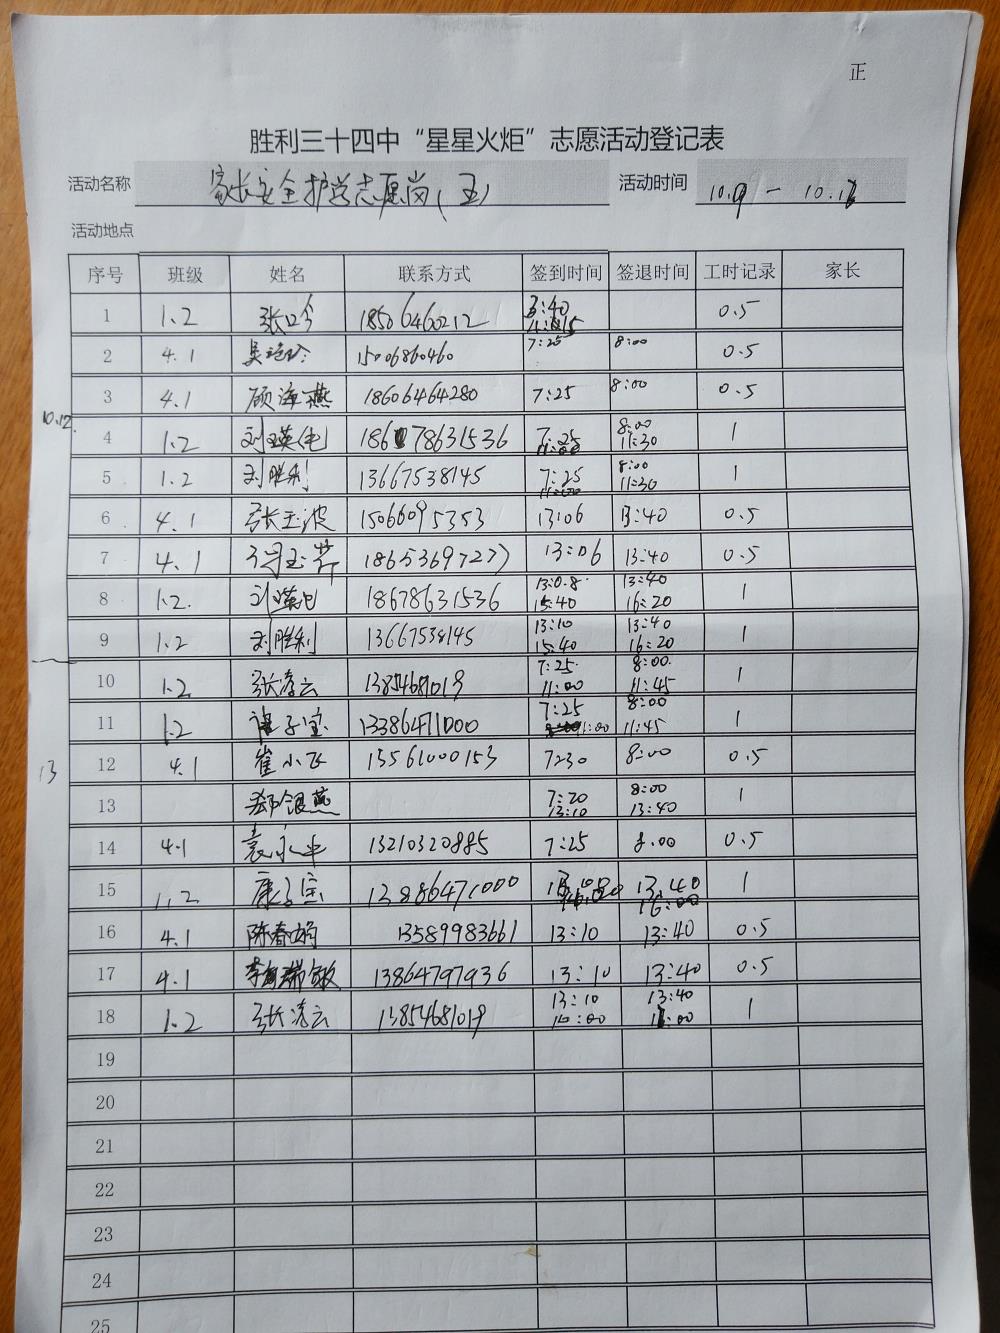 正
胜利三十四中“星星火炬”志愿活动登记表
活动名称 家长安全护学志愿岗(五) 活动时间 10.9 - 10.
活动地点
序号 班级 姓名 联系方式 签到时间 签退时间 工时记录 家长
1 1.2 18506460212 3:40 0.5
2 4.1 15006860460 7:25 8:00 0.5
3 4.1 顾海燕 18606464280 7:25 8:00 0.5
10.12
4 1.2 18678631536 7:25 11:00 8:00 11:30 1
5 1.2 刘胜利 13667538145 7:25 11:00 8:00 11:30 1
6 4.1 张玉波 15066095353 13:06 13:40 0.5
7 4.1 18653697277 13:06 13:40 0.5
8 1.2. 18678631536 13:08 15:40 13:40 16:20 1
9 1.2 刘胜利 13667538145 13:10 15:40 13:40 16:20 1
10 1.2 张凌云 13854681019 7:25 11:00 8:00 11:45 1
11 1.2 13386471000 7:25 11:00 8:00 11:45 1
12 4.1 崔小飞 13561000153 7230 8:00 0.5
13
13 郄银燕 7:20 13:10 8:00 13:40 1
14 4.1 袁永中 13210320885 7:25 8.00 0.5
15 1.2 康子宝 13886471000 13:40 16:00 1
16 4.1 陈春娟 13589983661 13:10 13:40 0.5
17 4.1 13864797936 13:10 13:40 0.5
18 1.2 张凌云 13854681019 13:10 16:00 13:40 1
19
20
21
22
23
24
25